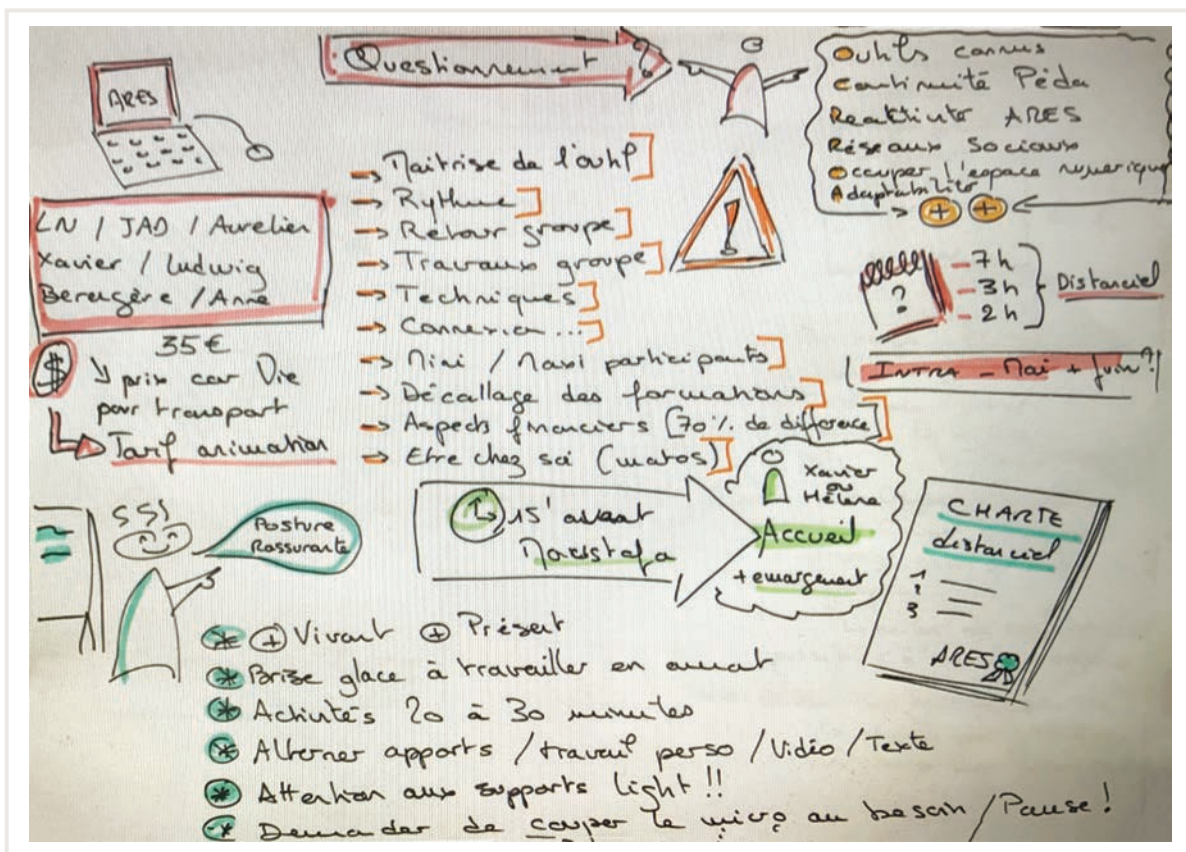 ARES
Questionnement ?
Outils connus
Continuité Péda
Reactivité ARES
Réseaux Sociaux
Occuper l'espace numerique
Adaptabilité
+ +
LN / JAD / Aurelien
Xavier / Ludwig
Berengère / Anne
35 €
$ ↘ prix car Vie
pour transport
Tarif animation
→ Maitrise de l'outil]
→ Rythme]
→ Retour groupe]
→ Travaux groupe]
→ Techniques]
→ Connexion...]
→ Mini / Maxi participants]
→ Décallage des formations]
→ Aspects financiers [70% de difference]
→ Etre chez soi (matos)]
!
?
- 7h
- 3h
- 2h
Distanciel
INTRA - Mai + Juin ?
SSS
Posture
Rassurante
15' avant
Xavier
ou
Hélène
Accueil
+ emargement
CHARTE
distanciel
1
2
3
ARES
* + Vivant + Présent
* Brise glace à travailler en amont
* Activités 20 à 30 minutes
* Alterner apports / travail perso / Vidéo / Texte
* Attention aux supports light !!
* Demander de couper le micro au besoin / Pause !